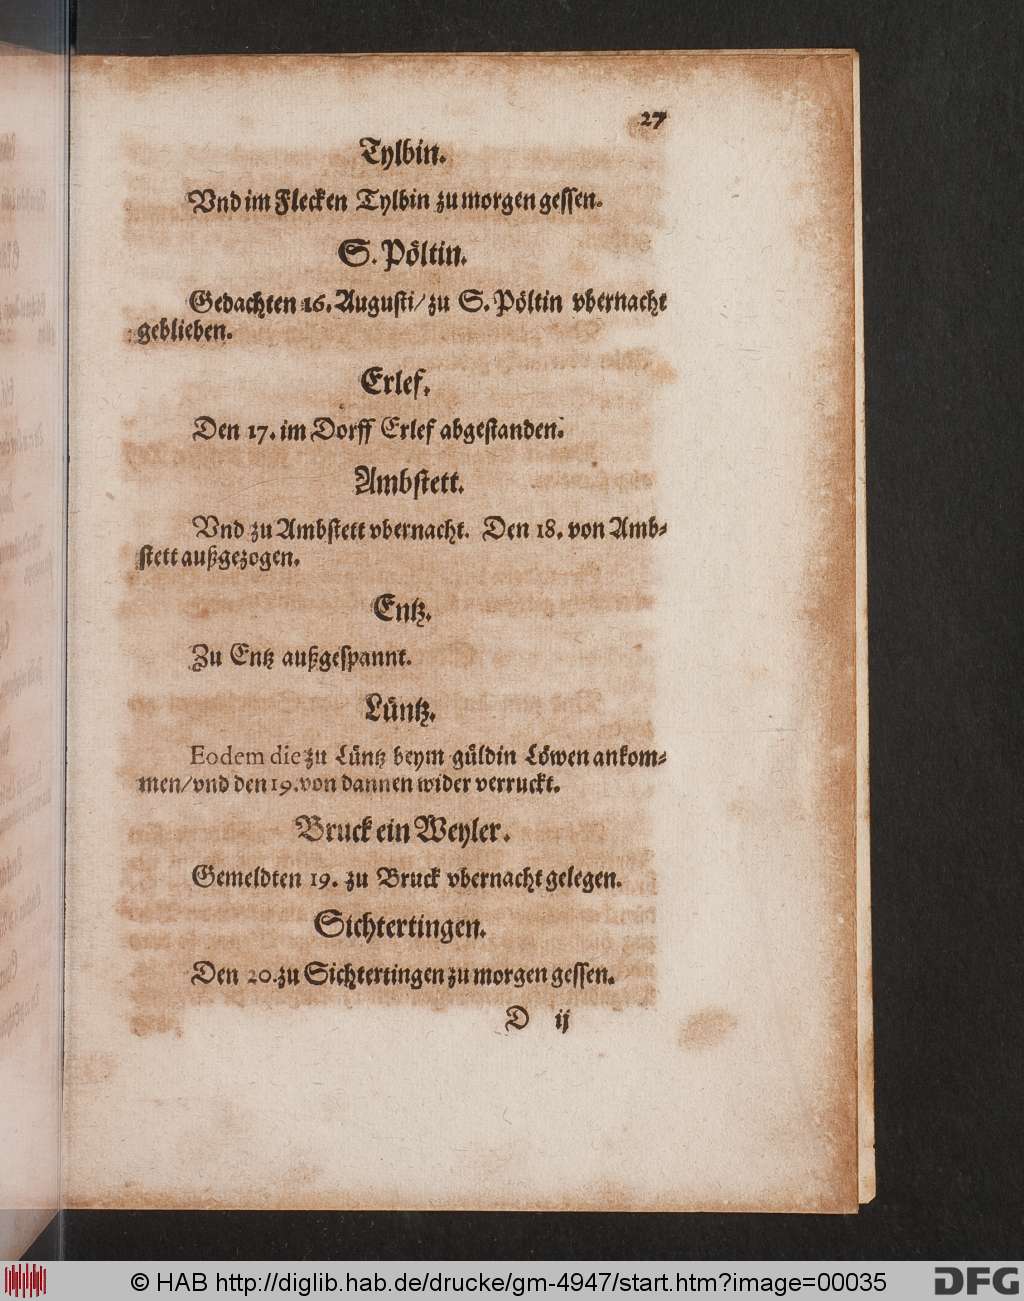 27
Tylbin.
Vnd im Flecken Tylbin zu morgen gessen.
S. Pöltin.
Gedachten 16. Augusti/ zu S. Pöltin vbernacht
geblieben.
Erlef.
Den 17. im Dorff Erlef abgestanden.
Ambstett.
Vnd zu Ambstett vbernacht. Den 18. von Amb-
stett außgezogen.
Entz.
Zu Entz außgespannt.
Lüntz.
Eodem die zu Lüntz beym güldin Löwen ankom-
men/ vnd den 19. von dannen wider verruckt.
Bruck ein Weyler.
Gemeldten 19. zu Bruck vbernacht gelegen.
Sichtertingen.
Den 20. zu Sichtertingen zu morgen gessen.
D ij
© HAB http://diglib.hab.de/drucke/gm-4947/start.htm?image=00035
DFG